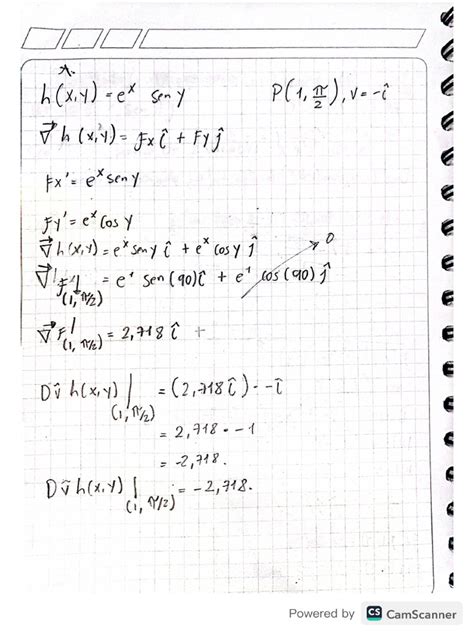 A.
h(x,y) = e^x sen y      P(1, π/2), v = -î
∇h(x,y) = Fx î + Fy ĵ
Fx' = e^x sen y
Fy' = e^x cos y
∇h(x,y) = e^x sen y î + e^x cos y ĵ      0
∇F|(1, π/2) = e^1 sen(90) î + e^1 cos(90) ĵ
∇F|(1, π/2) = 2,718 î +
Dv̂ h(x,y)|(1, π/2) = (2,718 î) · -î
= 2,718 · -1
= -2,718.
Dv̂ h(x,y)|(1, π/2) = -2,718.
Powered by CS CamScanner